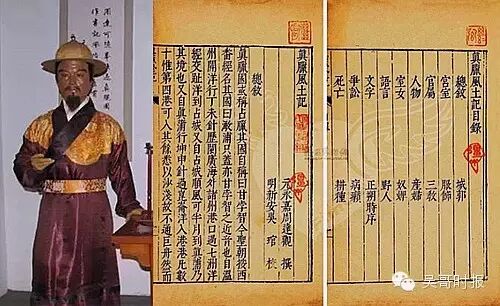 眞臘風土記目錄
總敘 城郭
宮室 服飾
官屬 三教
人物 產婦
室女 奴婢
語言 野人
文字 正朔時序
爭訟 病癩
死亡 耕種
眞臘風土記
元永嘉周達觀 撰
明新安吳琯 校
總敘
眞臘國或稱占臘其國自稱曰甘孛智今聖朝按西
番經名其國曰澉浦只蓋亦甘孛智之近音也自溫
州開洋行丁未針歷閩廣海外諸州港口過七洲洋
經交趾洋到占城又自占城順風可半月到眞蒲乃
其境也又自眞蒲行坤申針過崑崙洋入港港凡數
十惟第四港可入其餘悉以沙淺故不通巨舟然而
吴哥时报